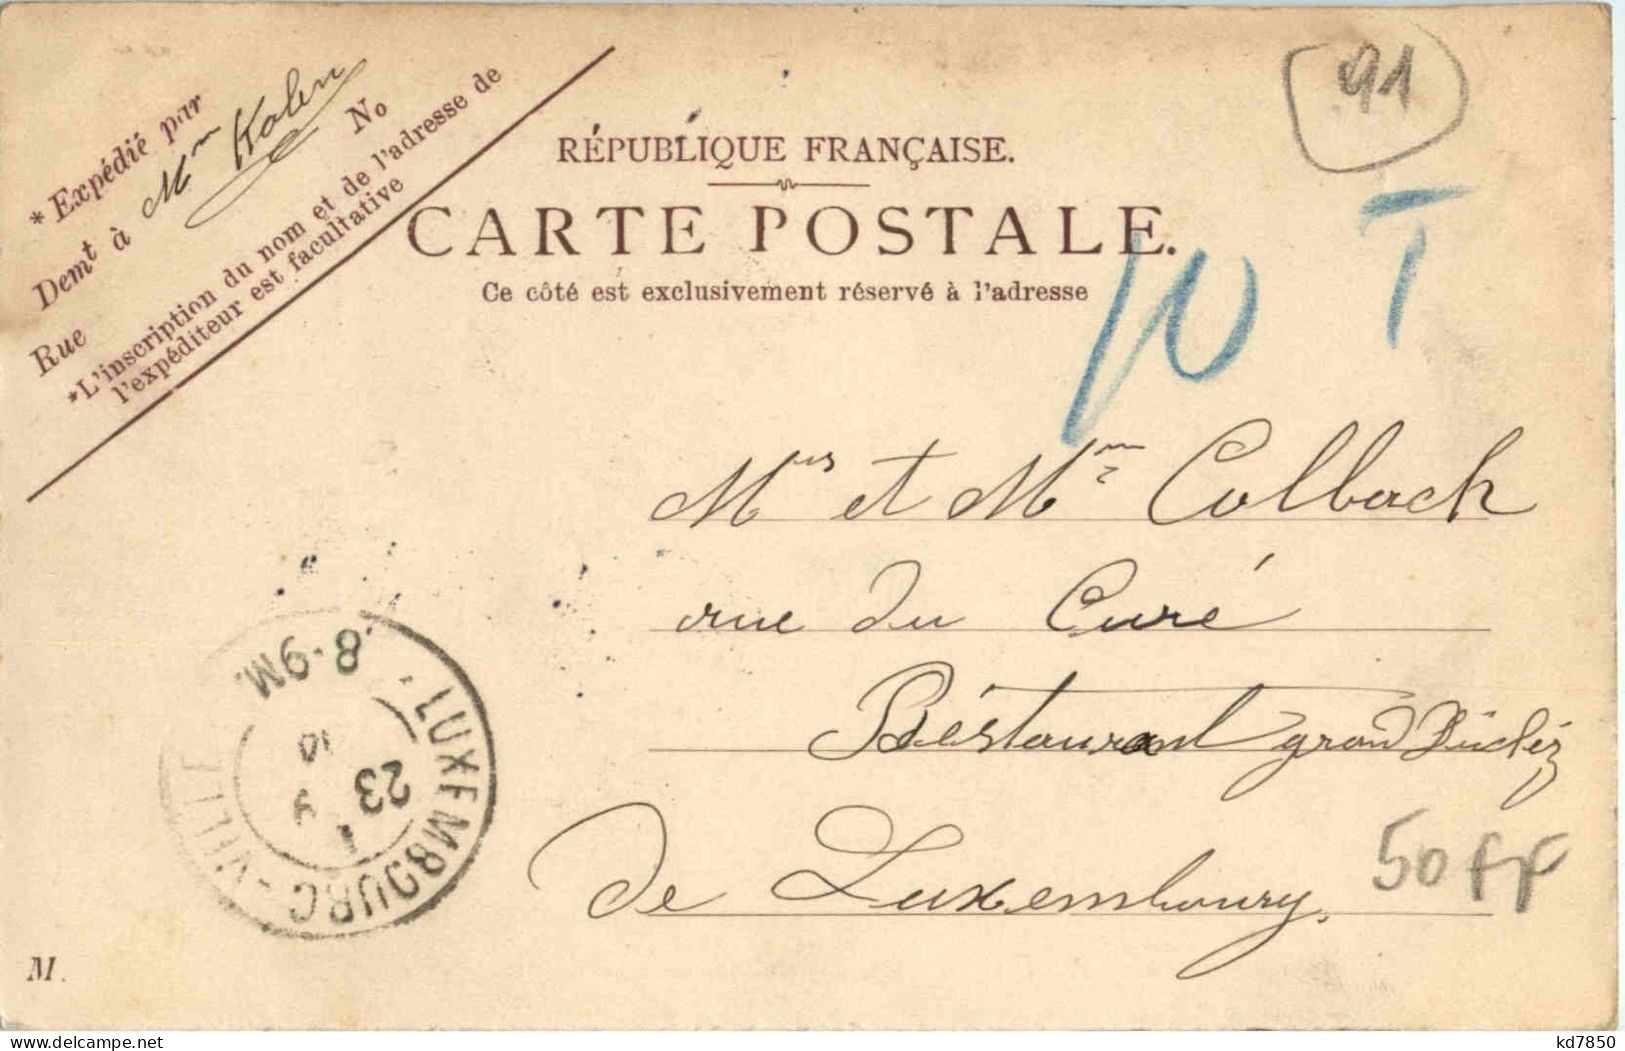 * Expédié par Mᵐ Kolen
Demᵗ à
Rue No
*L'inscription du nom et de l'adresse de
l'expéditeur est facultative
91
RÉPUBLIQUE FRANÇAISE.
CARTE POSTALE.
Ce côté est exclusivement réservé à l'adresse
10 T
Mʳˢ et Mᵐ Colbach
rue du Curé
Réstaurant grand Duché
de Luxembourg.
50 FF
LUXEMBOURG-VILLE
8-9M.
23
10
M.
kd7850